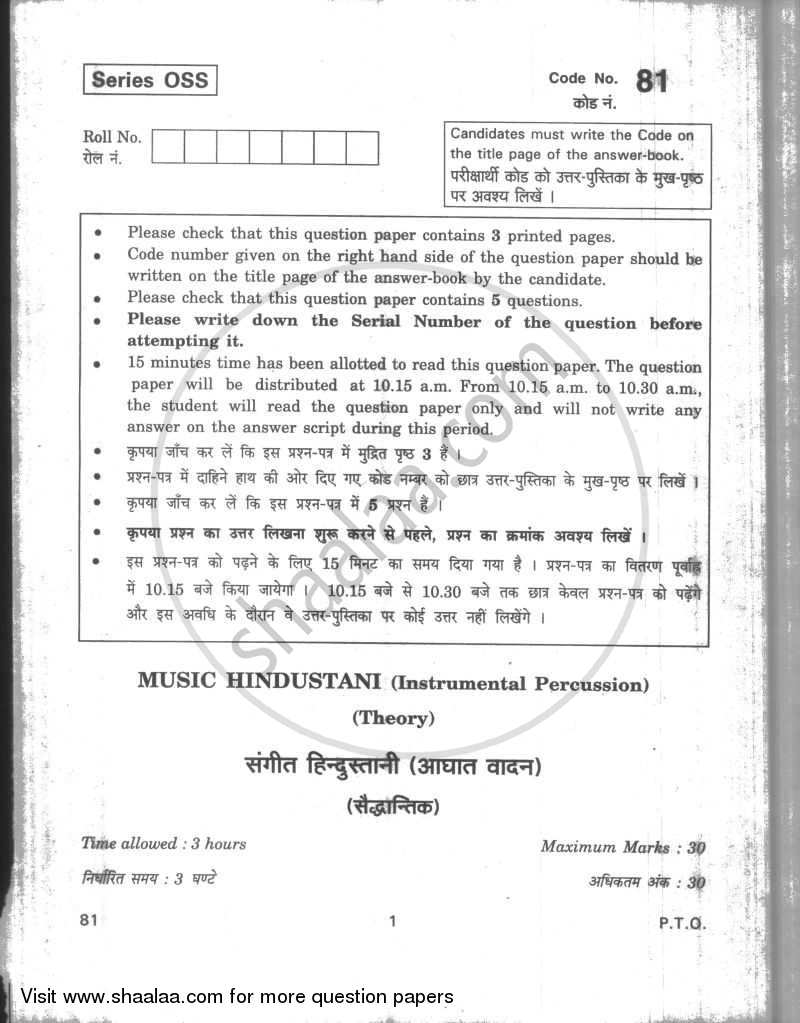 Series OSS
Code No. 81
कोड नं.
Roll No.
रोल नं.
Candidates must write the Code on
the title page of the answer-book.
परीक्षार्थी कोड को उत्तर-पुस्तिका के मुख-पृष्ठ
पर अवश्य लिखें ।
• Please check that this question paper contains 3 printed pages.
• Code number given on the right hand side of the question paper should be
written on the title page of the answer-book by the candidate.
• Please check that this question paper contains 5 questions.
• Please write down the Serial Number of the question before
attempting it.
• 15 minutes time has been allotted to read this question paper. The question
paper will be distributed at 10.15 a.m. From 10.15 a.m. to 10.30 a.m.,
the student will read the question paper only and will not write any
answer on the answer script during this period.
• कृपया जाँच कर लें कि इस प्रश्न-पत्र में मुद्रित पृष्ठ 3 हैं ।
• प्रश्न-पत्र में दाहिने हाथ की ओर दिए गए कोड नम्बर को छात्र उत्तर-पुस्तिका के मुख-पृष्ठ पर लिखें ।
• कृपया जाँच कर लें कि इस प्रश्न-पत्र में 5 प्रश्न हैं ।
• कृपया प्रश्न का उत्तर लिखना शुरू करने से पहले, प्रश्न का क्रमांक अवश्य लिखें ।
• इस प्रश्न-पत्र को पढ़ने के लिए 15 मिनट का समय दिया गया है । प्रश्न-पत्र का वितरण पूर्वाह्न
में 10.15 बजे किया जायेगा । 10.15 बजे से 10.30 बजे तक छात्र केवल प्रश्न-पत्र को पढ़ेंगे
और इस अवधि के दौरान वे उत्तर-पुस्तिका पर कोई उत्तर नहीं लिखेंगे ।
shaalaa.com
MUSIC HINDUSTANI (Instrumental Percussion)
(Theory)
संगीत हिन्दुस्तानी (आघात वादन)
(सैद्धान्तिक)
Time allowed : 3 hours
Maximum Marks : 30
निर्धारित समय : 3 घण्टे
अधिकतम अंक : 30
81
1
P.T.O.
Visit www.shaalaa.com for more question papers